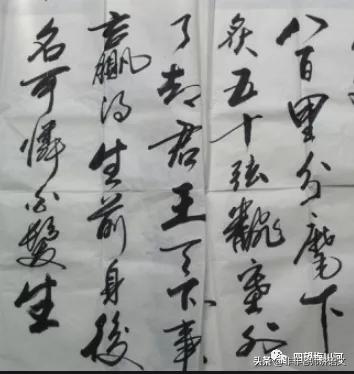 八百里分麾下
炙五十弦翻塞外
了却君王天下事
赢得生前身後
名可憐白髮生
头条